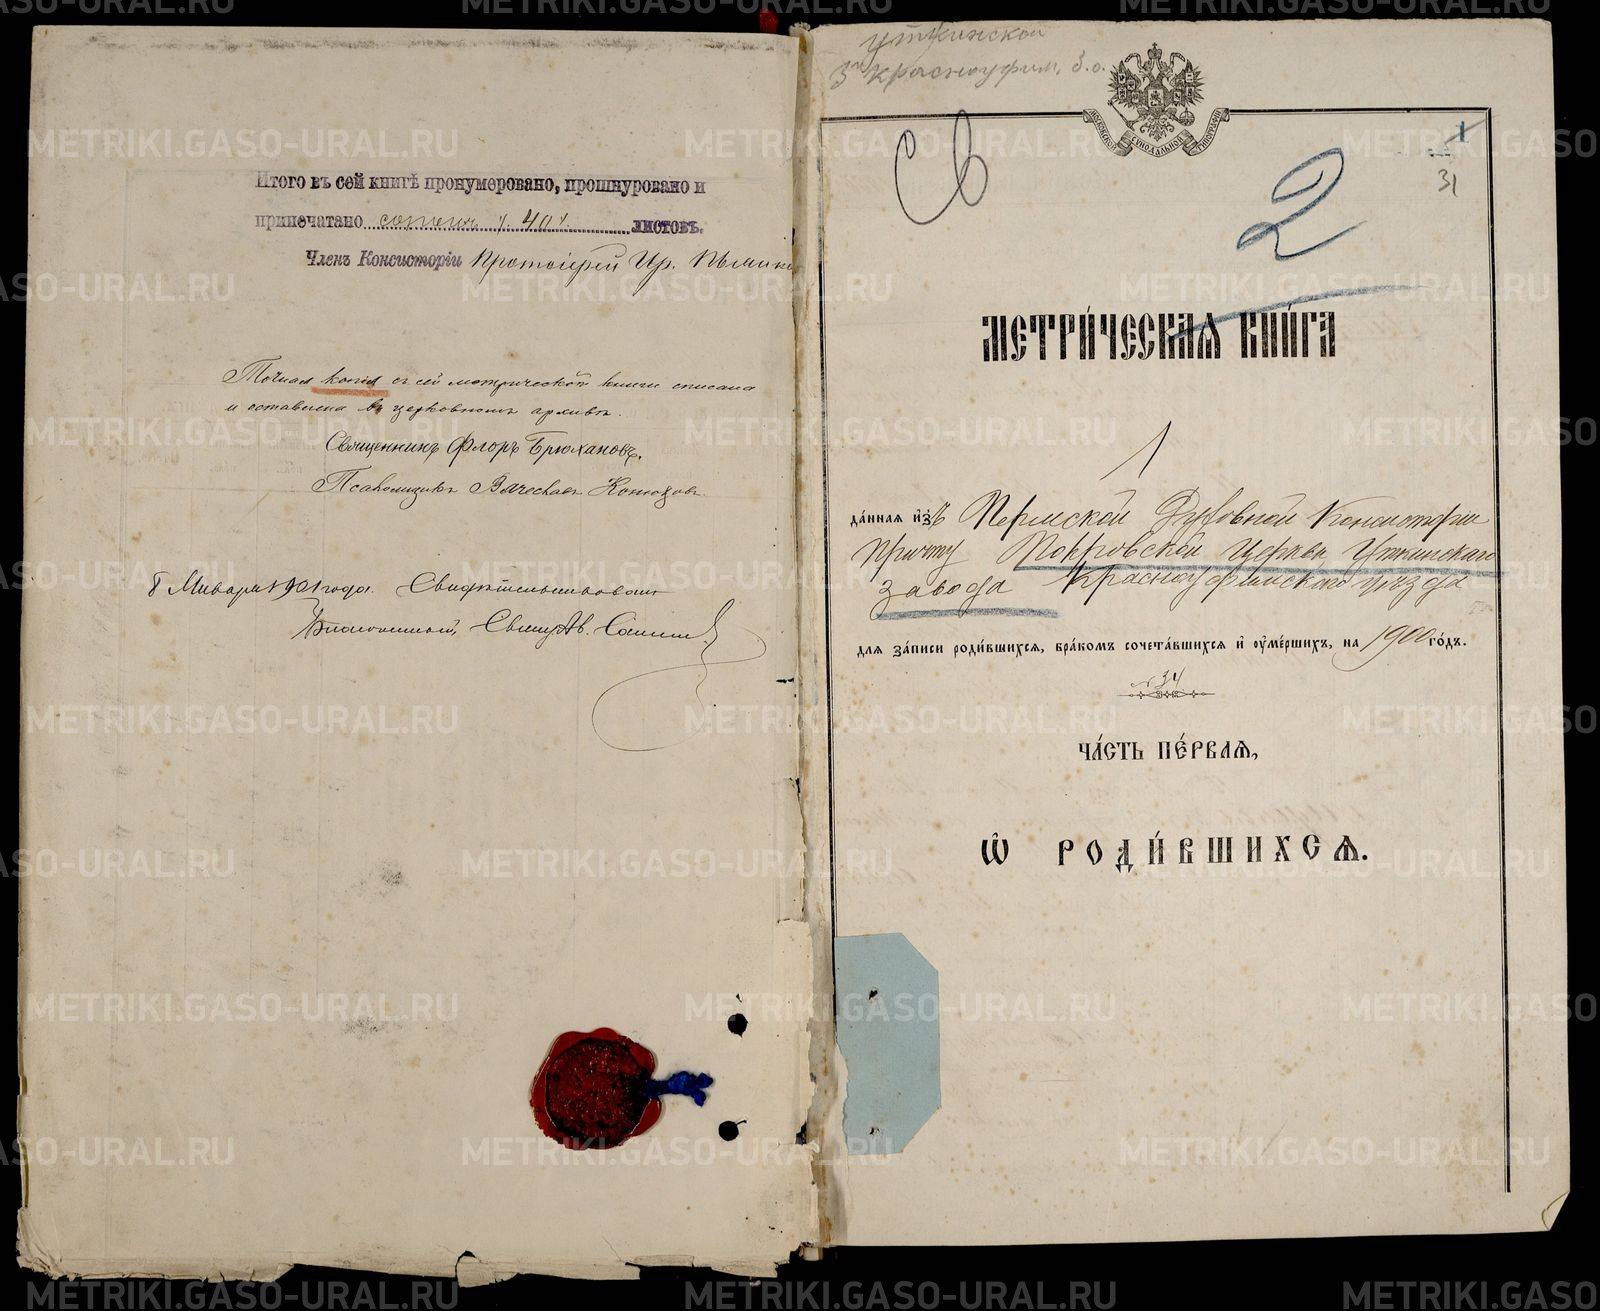 Итого въ сей книгѣ пронумеровано, прошнуровано и
припечатано сорокъ / 40 /. листовъ.
Членъ Консисторіи Протоіерей
Точная копія съ сей метрической книги списана
и оставлена въ церковномъ архивѣ.
Священникъ Флоръ Брюхановъ.
Псаломщикъ Вячеславъ Конюховъ
8 Января 1901 года. Свидѣтельствовалъ
Благочинный, Свящ.
Уткинской
Красноуфим. у.
МОСКОВСКОЙ СѴНОДАЛЬНОЙ ТИПОГРАФІИ
1
31
Св
2
МЕТРИ́ЧЕСКАѦ КНИ́ГА
1
да́нная и҆з̾ъ Пермской Духовной Консисторіи
Причту Покровской церкви Уткинскаго
завода Красноуфимскаго уѣзда
для за́писи роди́вшихсѧ, бра́комъ сочета́вшихсѧ и҆ ᲂу҆ме́ршихъ, на 1900 го́дъ.
№ 34
ЧА́СТЬ ПЕ́РВАѦ,
Ѽ РОДИ́ВШИХСѦ.
METRIKI.GASO-URAL.RU